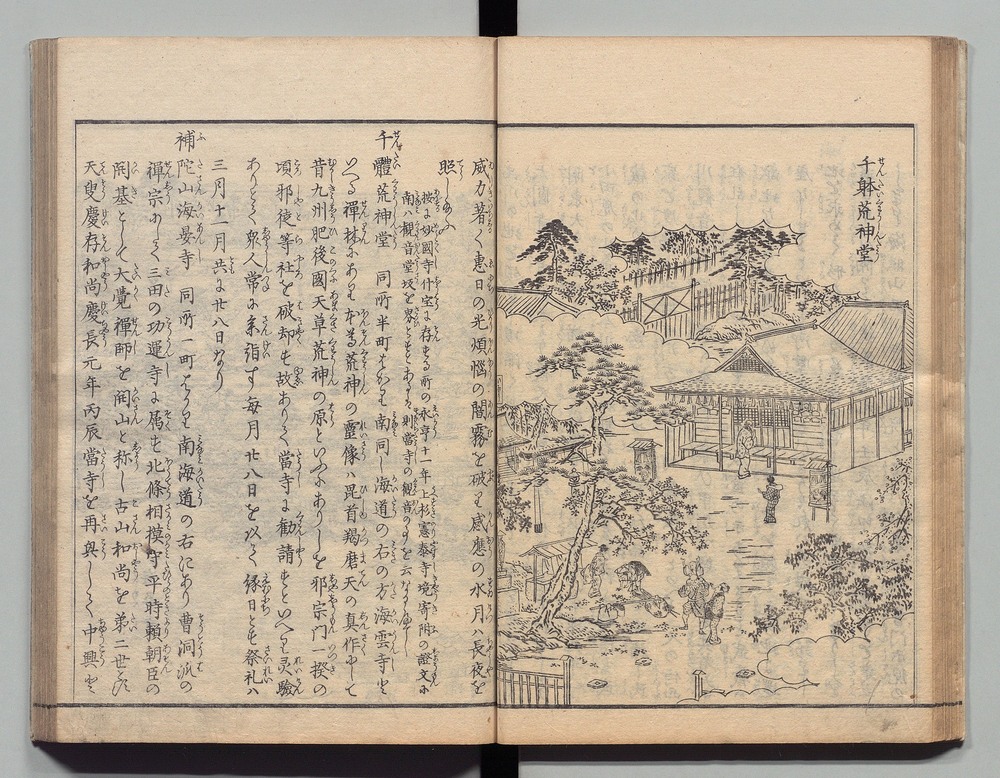 千躰荒神堂
威力著く恵日の光煩悩の闇霧を破り感應の水月ハ長夜を
照しゆふ
按に妙國寺什宝に存する所の永享十一年上杉憲泰寺境寄附の證文に
南ハ観音堂坂を界ととあるハ則當寺の観音のことを云なるへし
千體荒神堂 同所半町はかり南同し海道の右の方海雲寺と
いへる禅林にあり本尊荒神の靈像ハ毘首羯磨天の真作にして
昔九州肥後國天草荒神の原といふにありしを邪宗門一揆の
頃邪徒等社を破却す故ありて當寺に勧請すといへり灵驗
ありとて衆人常に来詣す毎月廿八日を以て縁日とす祭礼ハ
三月十一月共に廿八日なり
補陀山海晏寺 同所一町はかり南海道の右にあり曹洞派の
禅宗にして三田の功運寺に属す北條相模守平時頼朝臣の
開基として大覺禅師を開山と称し古山和尚を第二世とす
天叟慶存和尚慶長元年丙辰當寺を再興して中興と